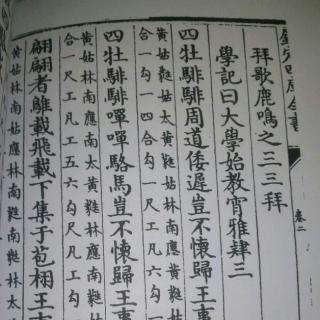 欽定四庫全書
卷二
拜歌鹿鳴之三三拜
學記曰大學始教宵雅肄三
四牡騑騑周道倭遲豈不懷歸王事
黃姑蕤姑太黃蕤姑林南應黃姑林
合一勾一四合勾一尺工凡合一尺
四牡騑騑嘽嘽駱馬豈不懷歸王事
黃姑林南應南太黃蕤林南蕤姑
合一尺工凡工五六勾尺工勾一
翩翩者鵻載飛載下集于苞栩王事
黃姑林南應南林南蕤南蕤林太